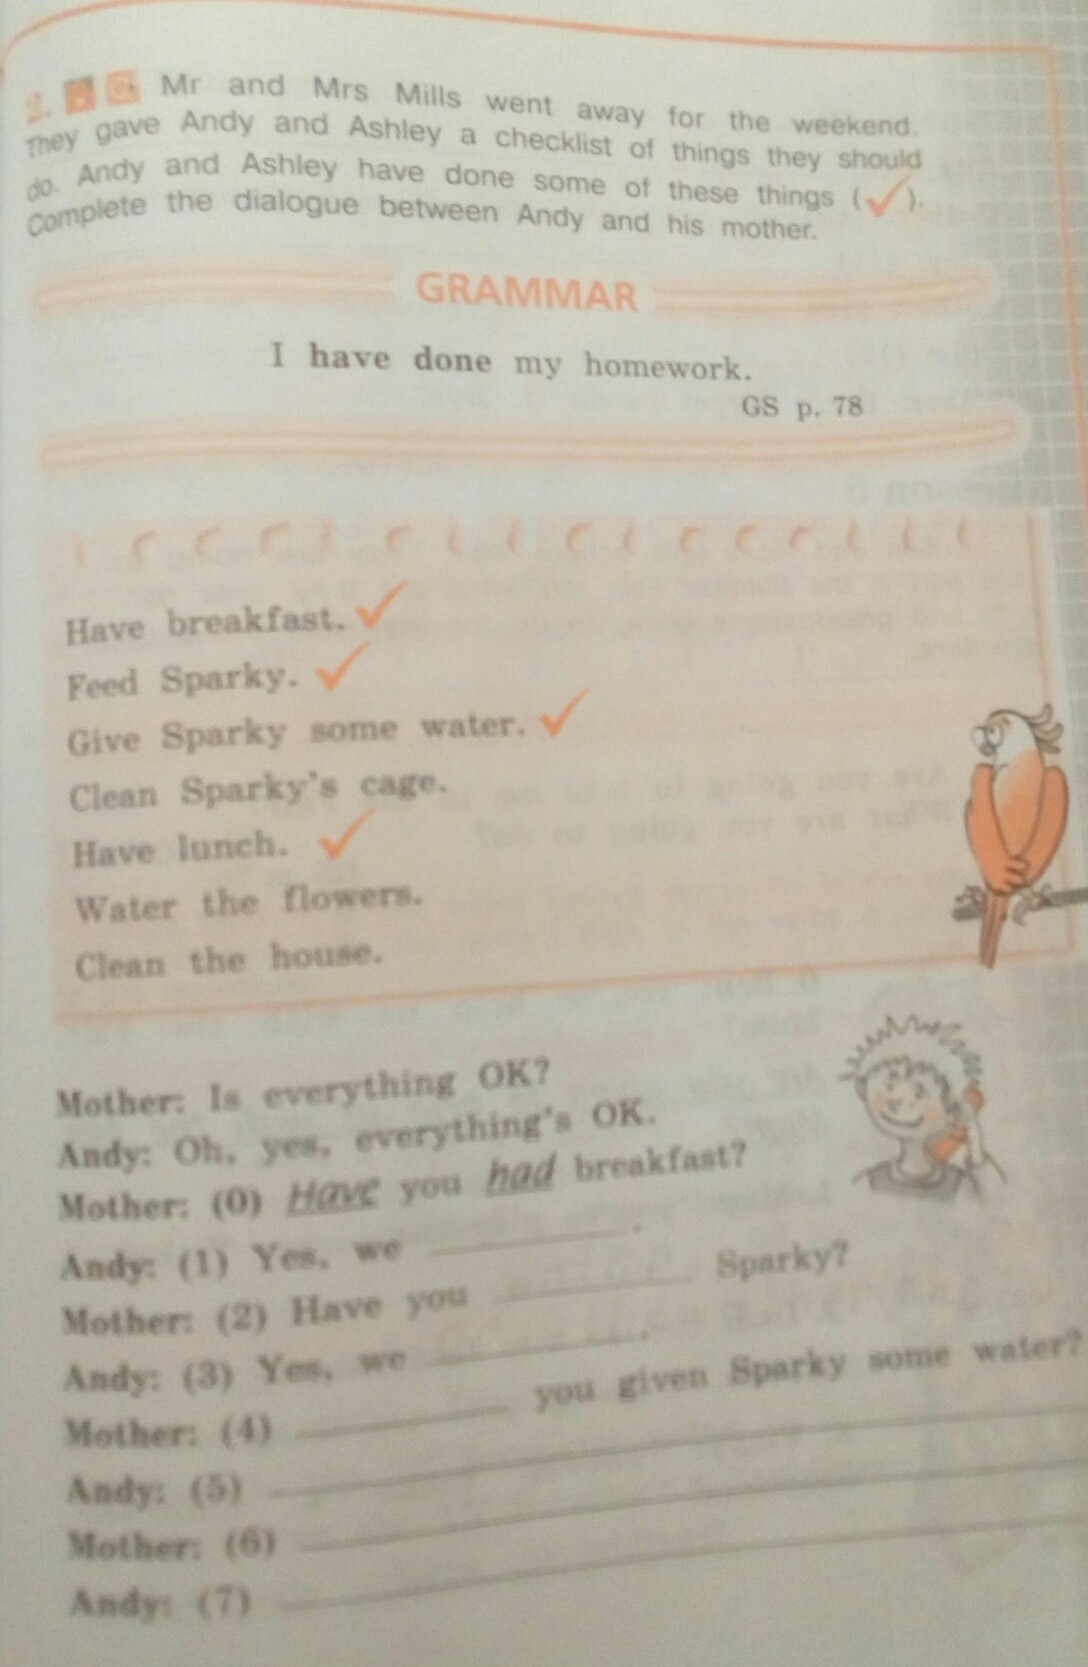 2. Mr and Mrs Mills went away for the weekend.
They gave Andy and Ashley a checklist of things they should
do. Andy and Ashley have done some of these things (✓).
Complete the dialogue between Andy and his mother.
GRAMMAR
I have done my homework.
GS p. 78
Have breakfast. ✓
Feed Sparky. ✓
Give Sparky some water. ✓
Clean Sparky's cage.
Have lunch. ✓
Water the flowers.
Clean the house.
Mother: Is everything OK?
Andy: Oh, yes, everything's OK.
Mother: (0) Have you had breakfast?
Andy: (1) Yes, we ______.
Mother: (2) Have you ______ Sparky?
Andy: (3) Yes, we ______.
Mother: (4) ______ you given Sparky some water?
Andy: (5) ______
Mother: (6) ______
Andy: (7) ______